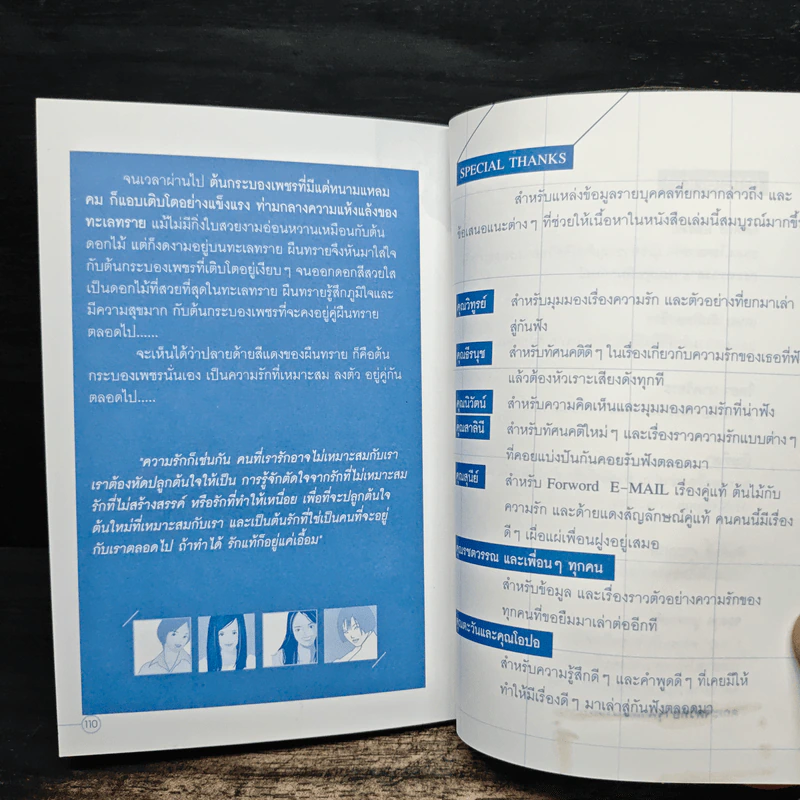 จนเวลาผ่านไป ต้นกระบองเพชรที่มีแต่หนามแหลม
คม ก็แอบเติบโตอย่างแข็งแรง ท่ามกลางความแห้งแล้งของ
ทะเลทราย แม้ไม่มีกิ่งใบสวยงามอ่อนหวานเหมือนกับต้น
ดอกไม้ แต่ก็งดงามอยู่บนทะเลทราย ผืนทรายจึงหันมาใส่ใจ
กับต้นกระบองเพชรที่เติบโตอยู่เงียบๆ จนออกดอกสีสวยใส
เป็นดอกไม้ที่สวยที่สุดในทะเลทราย ผืนทรายรู้สึกภูมิใจและ
มีความสุขมาก กับต้นกระบองเพชรที่จะคงอยู่คู่ผืนทราย
ตลอดไป......
จะเห็นได้ว่าปลายด้ายสีแดงของผืนทราย ก็คือต้น
กระบองเพชรนั่นเอง เป็นความรักที่เหมาะสม ลงตัว อยู่คู่กัน
ตลอดไป.....
"ความรักก็เช่นกัน คนที่เรารักอาจไม่เหมาะสมกับเรา
เราต้องหัดปลูกต้นใจให้เป็น การรู้จักตัดใจจากรักที่ไม่เหมาะสม
รักที่ไม่สร้างสรรค์ หรือรักที่ทำให้เหนื่อย เพื่อที่จะปลูกต้นใจ
ต้นใหม่ที่เหมาะสมกับเรา และเป็นต้นรักที่ใช่เป็นคนที่จะอยู่
กับเราตลอดไป ถ้าทำได้ รักแท้ก็อยู่แค่เอื้อม"
110
SPECIAL THANKS
สำหรับแหล่งข้อมูลรายบุคคลที่ยกมากล่าวถึง และ
ข้อเสนอแนะต่างๆ ที่ช่วยให้เนื้อหาในหนังสือเล่มนี้สมบูรณ์มากขึ้น
คุณวิทูรย์ สำหรับมุมมองเรื่องความรัก และตัวอย่างที่ยกมาเล่า
สู่กันฟัง
คุณธีรนุช สำหรับทัศนคติดีๆ ในเรื่องเกี่ยวกับความรักของเธอที่ฟัง
แล้วต้องหัวเราะเสียงดังทุกที
คุณนิวัตน์ สำหรับความคิดเห็นและมุมมองความรักที่น่าฟัง
คุณสาลินี สำหรับทัศนคติใหม่ๆ และเรื่องราวความรักแบบต่างๆ
ที่คอยแบ่งปันกันคอยรับฟังตลอดมา
คุณสุนีย์ สำหรับ Forword E-MAIL เรื่องคู่แท้ ต้นไม้กับ
ความรัก และด้ายแดงสัญลักษณ์คู่แท้ คนคนนี้มีเรื่อง
ดีๆ เผื่อแผ่เพื่อนฝูงอยู่เสมอ
คุณรชตวรรณ และเพื่อนๆ ทุกคน
สำหรับข้อมูล และเรื่องราวตัวอย่างความรักของ
ทุกคนที่ขอยืมมาเล่าต่ออีกที
คุณตะวันและคุณโอปอ
สำหรับความรู้สึกดีๆ และคำพูดดีๆ ที่เคยมีให้
ทำให้มีเรื่องดีๆ มาเล่าสู่กันฟังตลอดมา